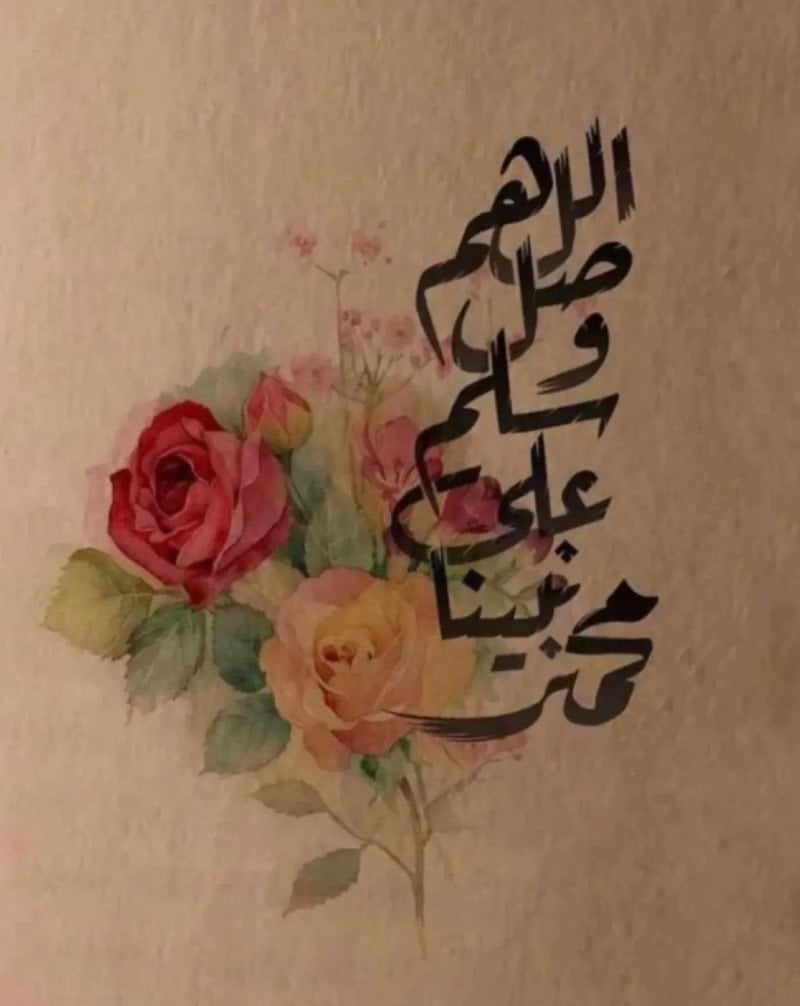 اللهم
صل
و
سلم
على
نبينا
محمد